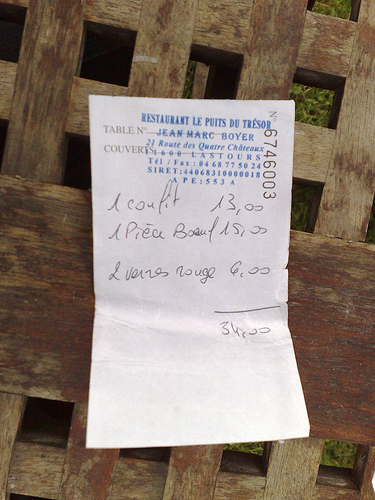 RESTAURANT LE PUITS DU TRÉSOR
TABLE N° JEAN MARC BOYER
21 Route des Quatre Châteaux
COUVERTS 11600 LASTOURS
Tél / Fax : 04 68 77 50 24
SIRET: 44068310000018
APE: 553 A
N° 6746003
1 confit 13,00
1 Pièce Boeuf 15,00
2 verres rouge 6,00
34,00